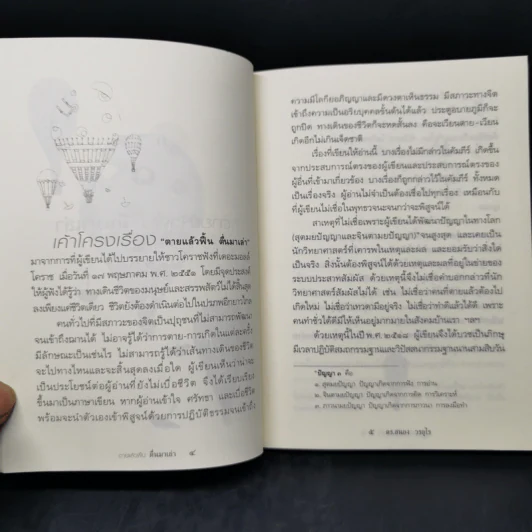 เค้าโครงเรื่อง "ตายแล้วฟื้น ตื่นมาเล่า"
มาจากการที่ผู้เขียนได้ไปบรรยายให้ชาวโคราชฟังที่เดอะมอลล์
โคราช เมื่อวันที่ ๑๗ พฤษภาคม พ.ศ. ๒๕๕๑ โดยมีจุดประสงค์
ให้ผู้ฟังได้รู้ว่า ทางเดินชีวิตของมนุษย์และสรรพสัตว์ไม่ได้สิ้นสุด
ลงเพียงแค่ชีวิตเดียว ชีวิตยังต้องดำเนินต่อไปในปรภพอีกยาวไกล
คนทั่วไปที่มีสภาวะของจิตเป็นปุถุชนที่ไม่สามารถพัฒนา
จนเข้าถึงฌานได้ ไม่อาจรู้ได้ว่าการตาย-การเกิดในแต่ละครั้ง
มีลักษณะเป็นเช่นไร ไม่สามารถรู้ได้ว่าเส้นทางเดินของชีวิต
จะไปทางไหนและจะสิ้นสุดลงเมื่อใด ผู้เขียนเห็นว่าน่าจะ
เป็นประโยชน์ต่อผู้อ่านที่ยังไม่เบื่อชีวิต จึงได้เรียบเรียง
ขึ้นมาเป็นภาษาเขียน หากผู้อ่านเข้าใจ ศรัทธา และเบื่อชีวิต
พร้อมจะนำตัวเองเข้าพิสูจน์ด้วยการปฏิบัติธรรมจนเข้าถึง
ตื่นมาเล่า ๔
ความมีโลกียอภิญญาและมีดวงตาเห็นธรรม มีสภาวะทางจิต
เข้าถึงความเป็นอริยบุคคลขั้นต้นได้แล้ว ประตูอบายภูมิก็จะ
ถูกปิด ทางเดินของชีวิตก็จะหดสั้นลง คือจะเวียนตาย-เวียน
เกิดอีกไม่เกินเจ็ดชาติ
เรื่องที่เขียนให้อ่านนี้ บางเรื่องไม่มีกล่าวในคัมภีร์ เกิดขึ้น
จากประสบการณ์ตรงของผู้เขียนและประสบการณ์ตรงของ
ผู้อื่นที่เข้ามาเกี่ยวข้อง บางเรื่องก็ถูกกล่าวไว้ในคัมภีร์ ทั้งหมด
เป็นเรื่องจริง ผู้อ่านไม่จำเป็นต้องเชื่อไปทุกเรื่อง เหมือนกับ
ที่ผู้เขียนไม่เชื่อในพุทธวจนะจนกว่าจะพิสูจน์ได้
สาเหตุที่ไม่เชื่อเพราะผู้เขียนได้พัฒนาปัญญาในทางโลก
(สุตมยปัญญาและจินตามยปัญญา)* จนสูงสุด และเคยเป็น
นักวิทยาศาสตร์ที่เคารพในเหตุและผล และยอมรับว่าสิ่งใด
เป็นจริง สิ่งนั้นต้องพิสูจน์ได้ด้วยเหตุและผลที่อยู่ในข่ายของ
ระบบประสาทสัมผัส ด้วยเหตุนี้จึงไม่เชื่อคำบอกกล่าวที่นัก
วิทยาศาสตร์สัมผัสไม่ได้ เช่น ไม่เชื่อว่าคนที่ตายแล้วต้องไป
เกิดใหม่ ไม่เชื่อว่าเทวดามีอยู่จริง ไม่เชื่อว่าทำดีแล้วได้ดี เพราะ
คนทำชั่วได้ดีมีให้เห็นอยู่มากมายในสังคมบ้านเรา ฯลฯ
ด้วยเหตุนี้ในปี พ.ศ. ๒๕๑๘ ผู้เขียนจึงได้บวชเป็นภิกษุ
มีเวลาปฏิบัติสมถกรรมฐานและวิปัสสนากรรมฐานนานสามสิบวัน
*ปัญญา ๓ คือ
๑. สุตมยปัญญา ปัญญาเกิดจากการฟัง การอ่าน
๒. จินตามยปัญญา ปัญญาเกิดจากการคิด การวิเคราะห์
๓. ภาวนามยปัญญา ปัญญาเกิดจากการภาวนา การลงมือทำ
๕ ดร.สนอง วรอุไร